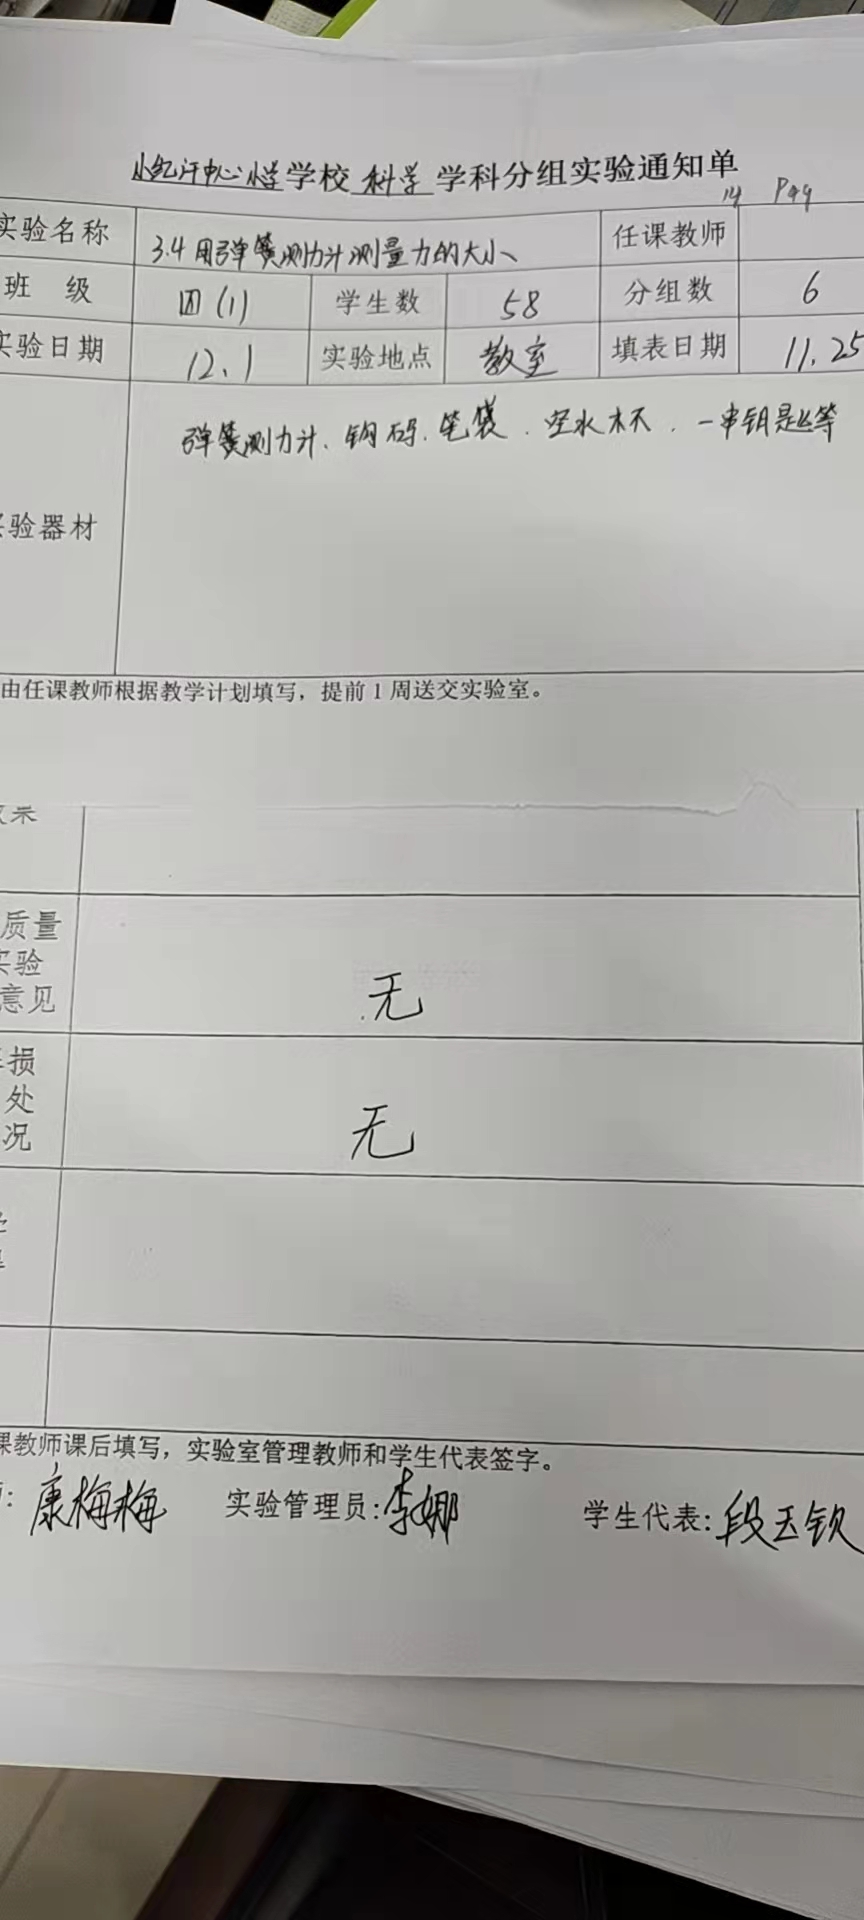 小纪汗中心小学学校 科学 学科分组实验通知单
14 P49
实验名称 3.4用弹簧测力计测量力的大小 任课教师
班 级 四(1) 学生数 58 分组数 6
实验日期 12.1 实验地点 教室 填表日期 11.25
弹簧测力计、钩码、笔袋、空水杯、一串钥匙等
实验器材
由任课教师根据教学计划填写，提前1周送交实验室。
效果
质量
实验
意见 无
损
处
况 无
课教师课后填写，实验室管理教师和学生代表签字。
康梅梅 实验管理员：李娜 学生代表：段玉钦